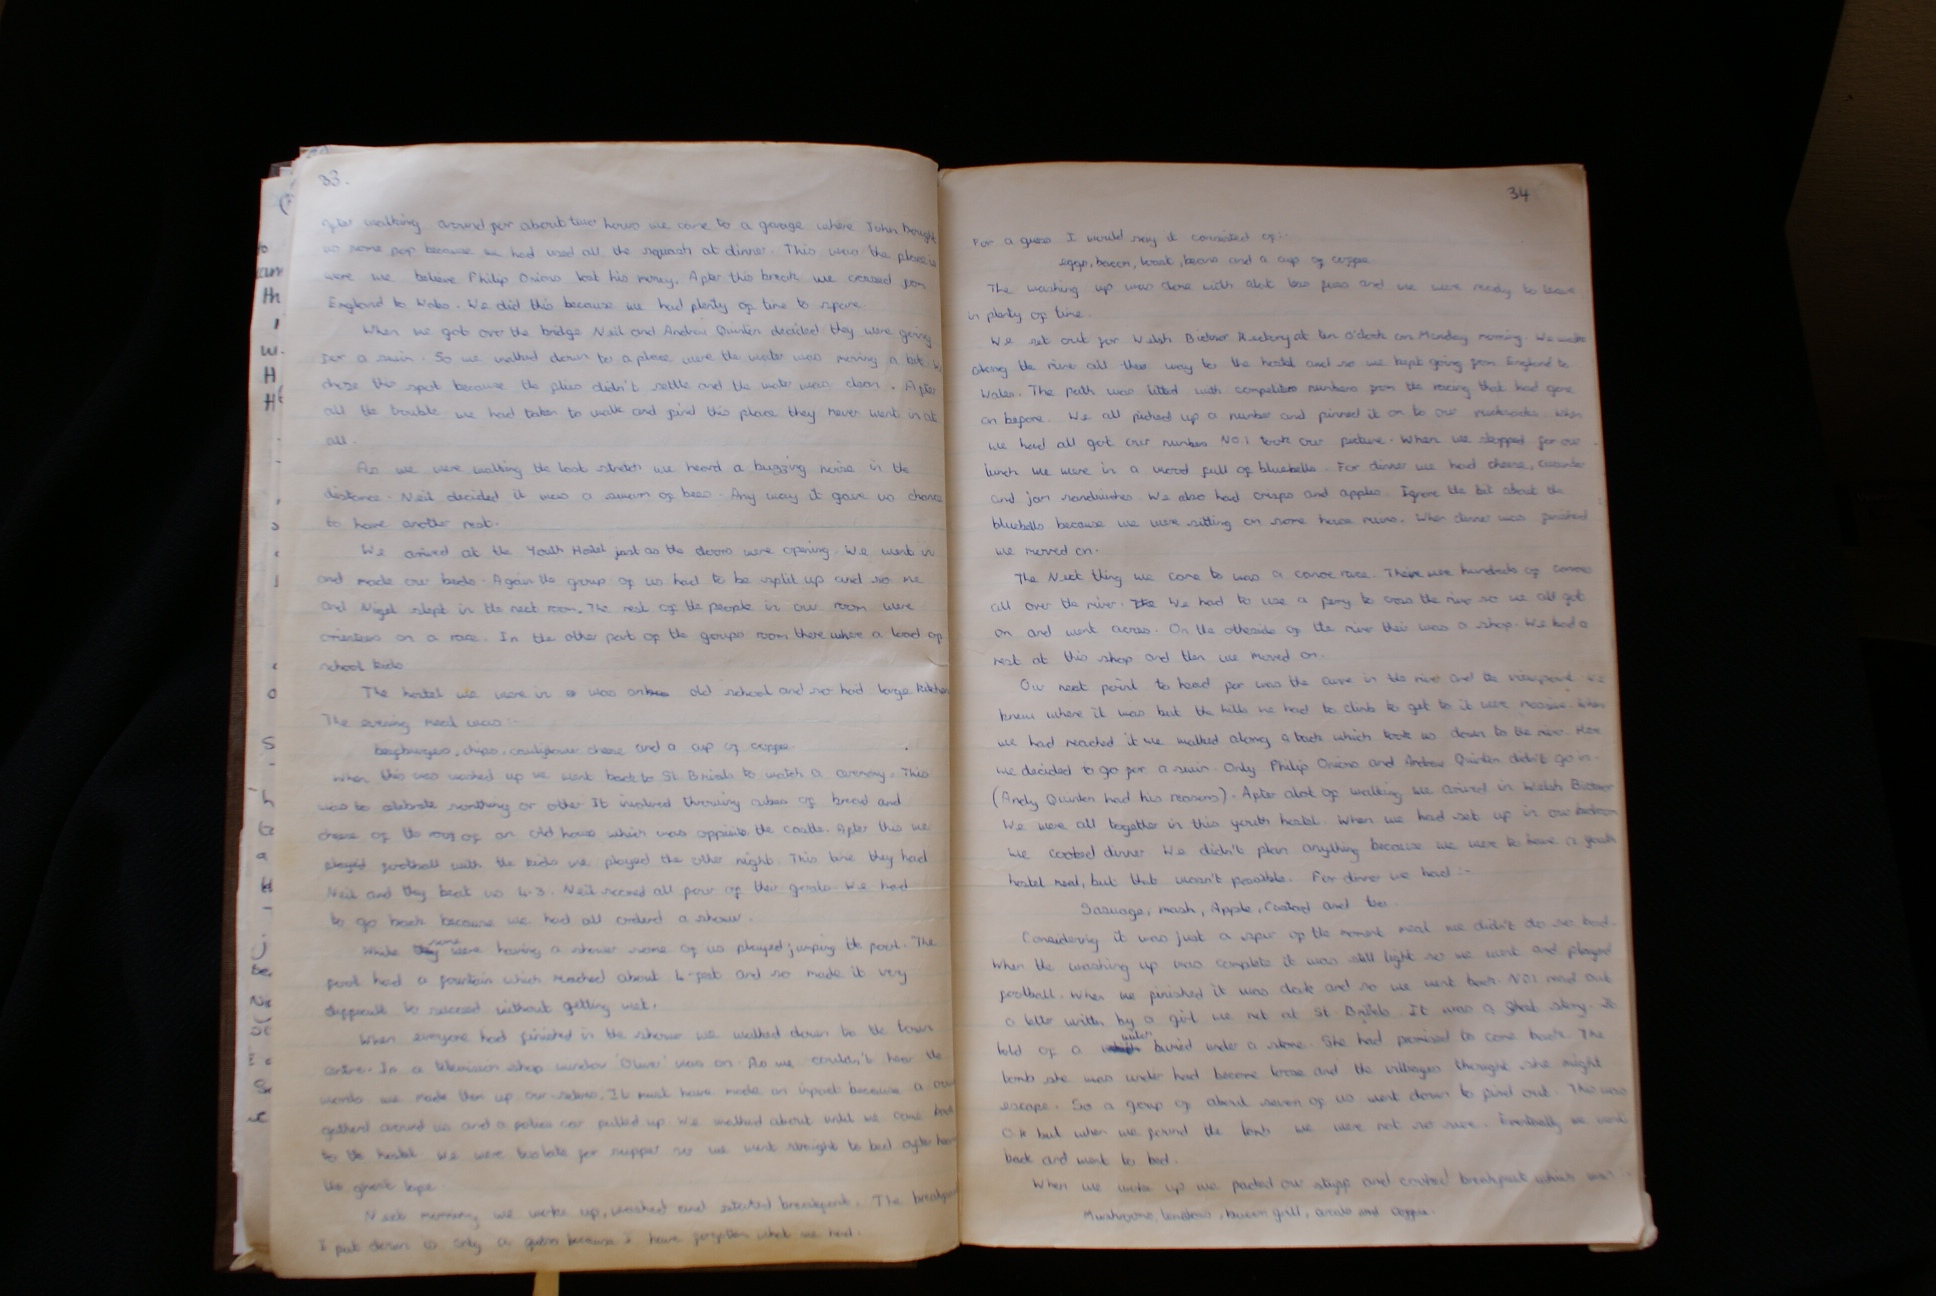 33.
After walking around for about two hours we came to a garage where John bought
us some pop because we had used all the squash at dinner. This was the place
were we believe Philip Onions lost his money. After this break we crossed from
England to Wales. We did this because we had plenty of time to spare.
When we got over the bridge Neil and Andrew Quinten decided they were going
for a swim. So we walked down to a place were the water was moving a bit. We
chose this spot because the flies didn't settle and the water was clean. After
all the trouble we had taken to walk and find this place they never went in at
all.
As we were walking the last stretch we heard a buzzing noise in the
distance. Neil decided it was a swarm of bees. Any way it gave us chance
to have another rest.
We arrived at the Youth Hostel just as the doors were opening. We went in
and made our beds. Again the group of us had to be split up and so me
and Nigel slept in the next room. The rest of the people in our room were
on a race. In the other part of the groups room there where a load of
school kids
The hostel we were in was old school and so had large kitchen
The evening meal was:-
beefburgers, chips, cauliflower cheese and a cup of coffee.
When this was washed up we went back to St Briavels to watch a ceremony. This
was to celebrate something or other It involved throwing cubes of bread and
cheese of the roof of an old house which was opposite the castle. After this we
played football with the kids we played the other night. This time they had
Neil and they beat us 4-3. Neil scored all four of their goals. We had
to go back because we had all ordered a shower.
While some were having a shower some of us played; jumping the pool. The
pool had a fountain which reached about 4-feet and so made it very
difficult to succeed without getting wet.
When everyone had finished in the shower we walked down to the town
centre. In a television shop window 'Oliver' was on. As we couldn't hear the
words we made them up our-selves. It must have made an inpact because a crowd
gatherd around us and a police car pulled up. We walked about until we came back
to the hostel. We were too late for supper so we went straight to bed after
the ghost tape.
Next morning we woke up, washed and started breakfast. The breakfast
I put down is only a guess because I have forgotten what we had.
34
For a guess I would say it consisted of:-
eggs, bacon, toast, beans and a cup of coffee.
The washing up was done with alot less fuss and we were ready to leave
in plenty of time.
We set out for Welsh Bicknor Rectory at ten O'clock on Monday morning. We
along the river all the way to the hostel and so we kept going from England to
Wales. The path was litted with competitors numbers from the racing that had gone
on before. We all picked up a number and pinned it on to our rucksacks. When
we had all got our numbers NO.1 took our picture. When we stopped for our
lunch we were in a wood full of bluebells. For dinner we had cheese, cucumber
and jam sandwiches We also had crisps and apples. Ignore the bit about the
bluebells because we were sitting on some house ruins. When dinner was finished
we moved on.
The Next thing we came to was a canoe race. There were hundreds of canoes
all over the river. We had to use a ferry to cross the river so we all got
on and went across. On the otherside of the river their was a shop. We had a
rest at this shop and then we moved on.
Our next point to head for was the curve in the river and the viewpoint. We
knew where it was but the hills we had to climb to get to it were massive. When
we had reached it we walked along a track which took us down to the river. Here
we decided to go for a swim. Only Philip Onions and Andrew Quinten didn't go in.
(Andy Quinten had his reasons). After alot of walking we arrived in Welsh Bicknor
We were all together in this youth hostel. When we had set up in our bedroom
we cooked dinner We didn't plan anything because we were to have a youth
hostel meal, but that wasn't possible. For dinner we had:-
Sausage, mash, Apple, Custard and tea.
Considering it was just a spur of the moment meal we didn't do so bad.
When the washing up was complete it was still light so we went and played
football. When we finished it was dark and so we went back. NO1 read out
a letter written by a girl we met at St. Briavels. It was a ghost story. It
told of a witch buried under a stone. She had promised to come back. The
tomb she was under had become loose and the villagers thought she might
escape. So a group of about seven of us went down to find out. This was
OK but when we found the tomb we were not so sure. Eventually we went
back and went to bed.
When we woke up we packed our stuff and cooked breakfast which was:-
Mushrooms, tomatoes, bacon grill, cereals and coffee.